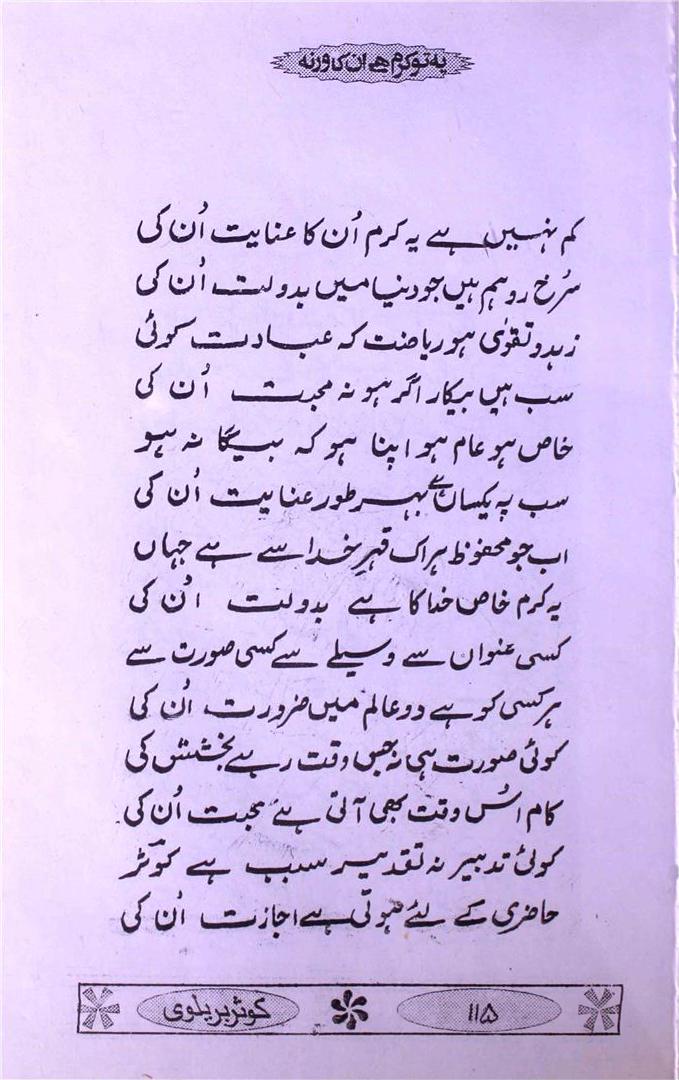 یہ تو کرم ہے ان کا ورنہ
کم نہیں ہے یہ کرم اُن کا عنایت اُن کی
سُرخ رو ہم ہیں جو دنیا میں بدولت اُن کی
زہد و تقوٰی ہو ریاضت کہ عبادت کوئی
سب ہیں بیکار اگر ہو نہ محبت اُن کی
خاص ہو عام ہو اپنا ہو کہ بیگا نہ ہو
سب پہ یکساں ہے بہر طور عنایت اُن کی
اب جو محفوظ ہر اک قہرِ خدا سے ہے جہاں
یہ کرم خاص خدا کا ہے بدولت اُن کی
کسی عنوان سے وسیلے سے کسی صورت سے
ہر کسی کو ہے دو عالم میں ضرورت اُن کی
کوئی صورت ہی نہ جس وقت رہے بخشش کی
کام اُس وقت بھی آتی ہے محبت اُن کی
کوئی تدبیر نہ تقدیر سبب ہے کوثر
حاضری کے لئے ہوتی ہے اجازت اُن کی
۱۱۵
کوثر بریلوی